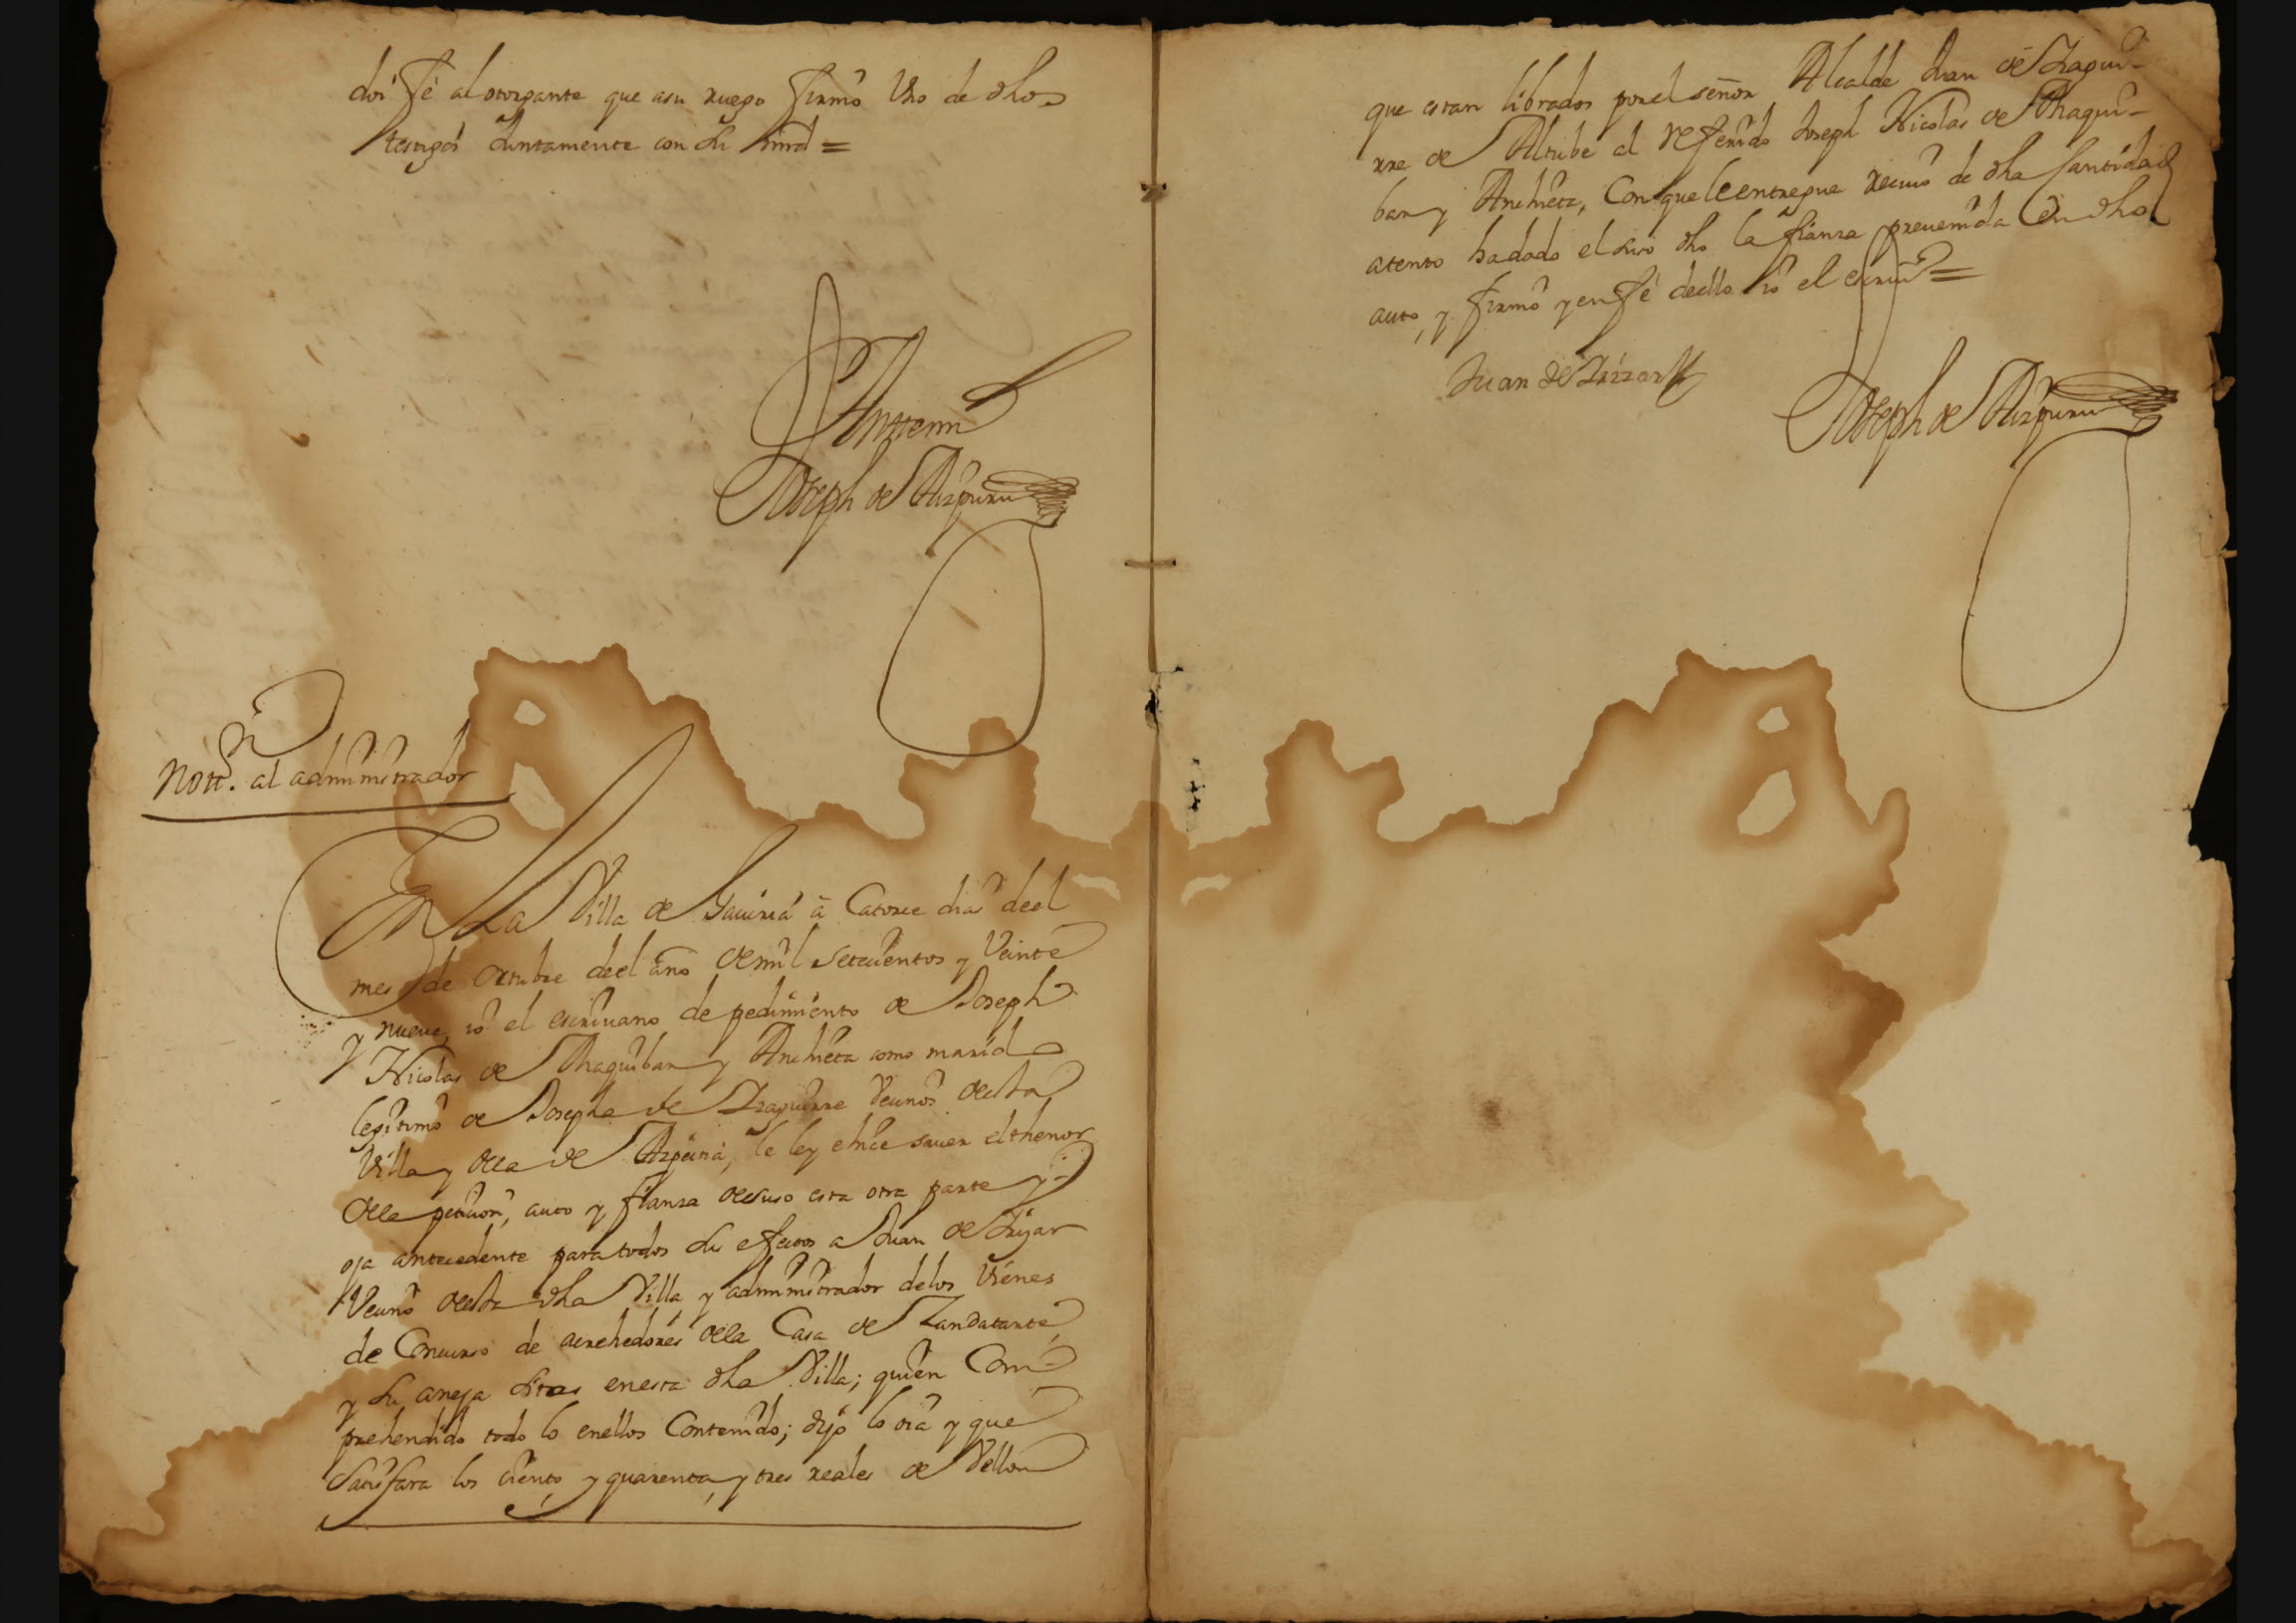 doi fé al otorgante que asu ruego firmó Uno de dhos
testigos Juntamente con Su mrd =
Antemi
Joseph de Aizpuru
Nott. al administrador
En La Villa de Gaviria á Catorce dias deel
mes de octubre deel año de mil setecientos y Veinte
y nueve, io el escrivano de pedimiento de Joseph
Nicolas de Araquiban y Ancheta como marido
legitimo de Josepha de Izaguirre Vecinos desta
Villa y de la de Azpeitia, le ley e hice saver el thenor
de la peticion, auto y fianza de suso esta otra parte y
oja antecedente para todos Sus efectos a Juan de
Vecino desta dha Villa y administrador de los Vienes
de Concurso de acrehedores de la Casa de Zandatarte,
y Su aneja Sitas en esta dha Villa; quien Com-
prehendido todo lo enellos Contenido; dijo lo oia y que
Satisfara los ciento, y quarenta, y tres reales de Vellon
que estan librados por el señor Alcalde Juan de Izagui-
rre de Altube al Referido Joseph Nicolas de Araqui-
ban y Ancheta, Con que le entregue recivo de dha Cantidad
atento ha dado el suso dho la fianza prevenida En dho
auto, y firmó y en fé de ello io el escrivo =
Juan de
Joseph de Aizpuru